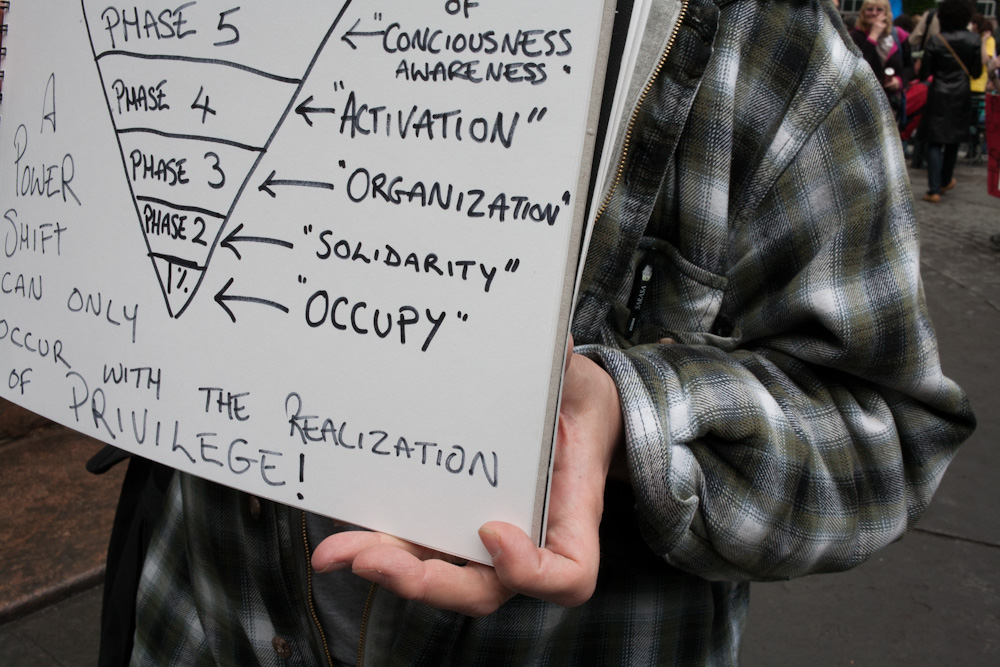 OF
PHASE 5
←"CONCIOUSNESS
AWARENESS"
PHASE 4
←"ACTIVATION"
PHASE 3
←"ORGANIZATION"
PHASE 2
←"SOLIDARITY"
1%
←"OCCUPY"
A
POWER
SHIFT
CAN ONLY
OCCUR WITH THE REALIZATION
OF PRIVILEGE!